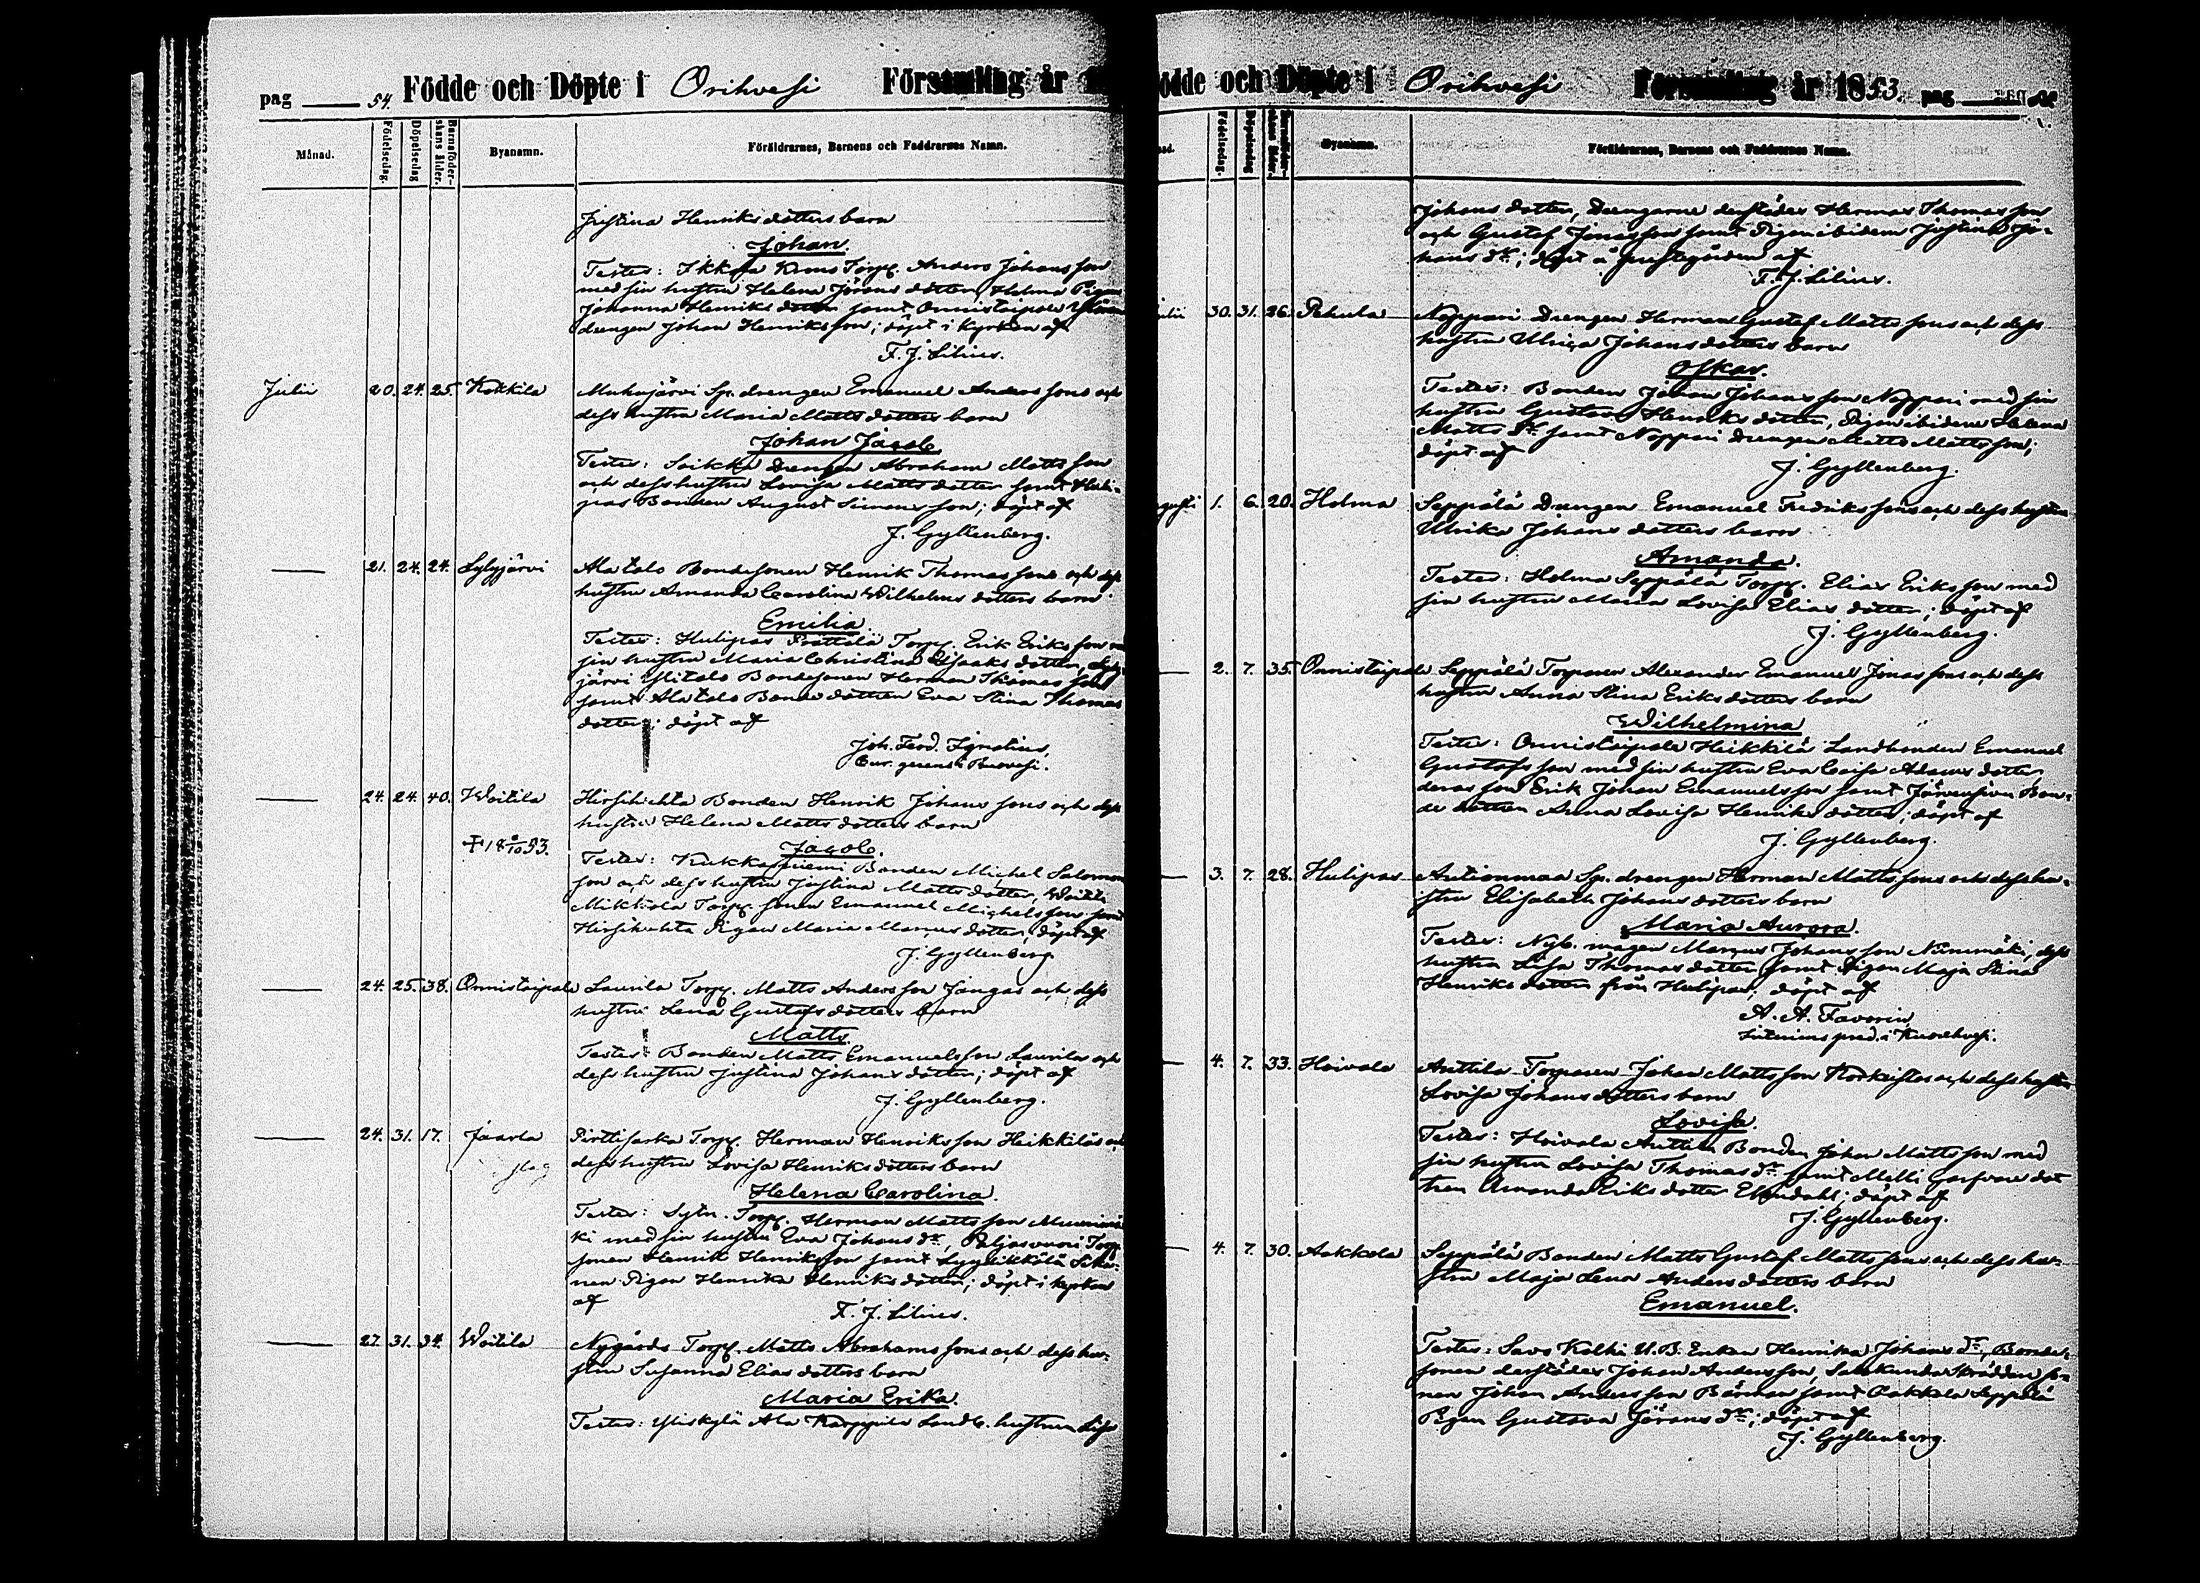 pag 54. Födde och Döpte i Orihvesi Församling år
Månad. Födelsedag. Döpelsedag Barnaföder-skans ålder. Byanamn. Föräldrarnes, Barnens och Faddrarnes Namn.
Justina Henriksdotters barn
Johan.
Testes: Torpp. Anders Johansson
med sin hustru Helena Jörans dotter, Holma Pigan
Johanna Henriks dotter samt Onnistaipale
drengen Johan Henriksson; döpt i kyrkan af
F. J. Lilius.
Julii 20. 24. 25. Kokkila Muhujärvi Sp. drengen Emanuel Anderssons och
dess hustru Maria Matts dotters barn
Johan Jacob.
Testes: Drengen Abraham Mattsson
och dess hustru Lovisa Mattsdotter samt Huli-
pas Bonden August Simonsson; döpt af
J. Gyllenberg.
— 21. 24. 24. Lylyjärvi Alatalo Bondesonen Henrik Thomassons och dess
hustru Amanda Carolina Wilhelms dotters barn
Emilia
Testes: Hulipas Prättälä Torpp. Erik Eriksson
sin hustru Maria Christina Isaaks dotter, Lyly-
järvi Ylitalo Bondesonen Herman Thomas son
samt Alatalo Bonde dottren Eva Stina Thomas
dotter; döpt af
Joh. Ferd. Ignatius,
Cur. gerens i Ruovesi.
— 24. 24. 40. Woitila Hirsihuhta Bonden Henrik Johanssons och dess
hustru Helena Mattsdotters barn
† 18 8/10 53. Jacob.
Testes: Kukkasniemi Bonden Michel Salomon
son och dess hustru Justina Mattsdotter, Woitila
Mikkola Torpp. sonen Emanuel Michelsson samt
Hirsihuhta Pigan Maria Marcus dotter; döpt af
J. Gyllenberg.
— 24. 25. 38. Onnistaipale Laurila Torpp. Matts Andersson Jangas och dess
hustru Lena Gustafs dotters barn
Matts.
Testes: Bonden Matts Emanuelsson Laurila och
dess hustru Justina Johansdotter; döpt af
J. Gyllenberg.
— 24. 31. 17. Jaarla Pirttisarka Torpp. Herman Henriksson Heikkiläs och
dess hustru Lovisa Henriksdotters barn
Helena Carolina.
Testes: Sytn. Torpp. Herman Mattsson
ki med sin hustru Eva Johansdr, Paljasvuori Torpp.
sonen Henrik Henriksson samt
nen Pigan Henrika Henriksdotter; döpt i kyrkan
af F. J. Lilius.
— 27. 31. 34. Woitila Nygårds Torpp. Matts Abrahamssons och dess hu-
stru Susanna Elias dotters barn
Maria Erika.
Testes: Yliskylä Ala Karppila Landb. hustrun Lisa
Födde och Döpte i Orihvesi Församling år 1853. pag
Födelsedag. Döpelsedag Byanamn. Föräldrarnes, Barnens och Faddrarnes Namn.
Johans dotter, Drengarne derstädes Herman Thomasson
och Gustaf Jonasson samt Pigan ibidem Justina Jo-
hansdr; döpt å prestgården af
F. J. Lilius.
30. 31. 26. Pehula Noppari Drengen Herman Gustaf Mattssons och dess
hustru Ulrica Johansdotters barn
Oskar.
Testes: Bonden Johan Johansson Noppari med sin
hustru Gustava Henriksdotter, Pigan ibidem Helena
Mattsdr samt Noppari drengen Matts Mattsson;
döpt af
J. Gyllenberg.
1. 6. 20. Holma Seppälä Drengen Emanuel Fredrikssons och dess hustru
Ulrika Johans dotters barn
Amanda.
Testes: Holma Seppälä Torpp. Elias Eriksson med
sin hustru Maria Lovisa Elias dotter; döpt af
J. Gyllenberg.
— 2. 7. 35. Onnistaipale Seppälä Torparen Alexander Emanuel Jonassons och dess
hustru Anna Stina Eriksdotters barn
Wilhelmina
Testes: Onnistaipale Heikkilä Landbonden Emanuel
Gustafsson med sin hustru Eva Caisa Adams dotter
deras son Erik Johan Emanuelsson samt Järvensivu Bon-
de dottren Anna Lovisa Henriksdotter; döpt af
J. Gyllenberg.
— 3. 7. 28. Hulipas Antionmaa Sp. drengen Herman Mattssons och dess hu-
stru Elisabeth Johans dotters barn
Maria Aurora.
Testes: Nyb. magen Marcus Johansson Nimmäki, dess
hustru Lisa Thomasdotter samt Pigan Maja Stina
Henriksdotter från Hulipas; döpt af
A. A. Favorin,
Interimspred. i Kuorehvesi.
— 4. 7. 33. Hoivala Anttila Torparen Johan Mattsson och dess hustru
Lovisa Johans dotters barn
Lovisa.
Testes: Hoivala Anttila Bonden Johan Mattsson med
sin hustru Lovisa Thomasdr samt Garfvare dot
tren Amanda Eriks dotter Ekendahl; döpt af
J. Gyllenberg.
— 4. 7. 30. Aakkola Seppälä Bonden Matts Gustaf Mattssons och dess hu-
stru Maja Lena Anders dotters barn
Emanuel.
Testes: Savo Kolhi U.B. Enkan Henrika Johansdr, Bonde-
sonen derstädes Johan Andersson, Skräddar so-
nen Johan Andersson samt Aakkola Seppälä
Pigan Gustava Jöransdr; döpt af
J. Gyllenberg.